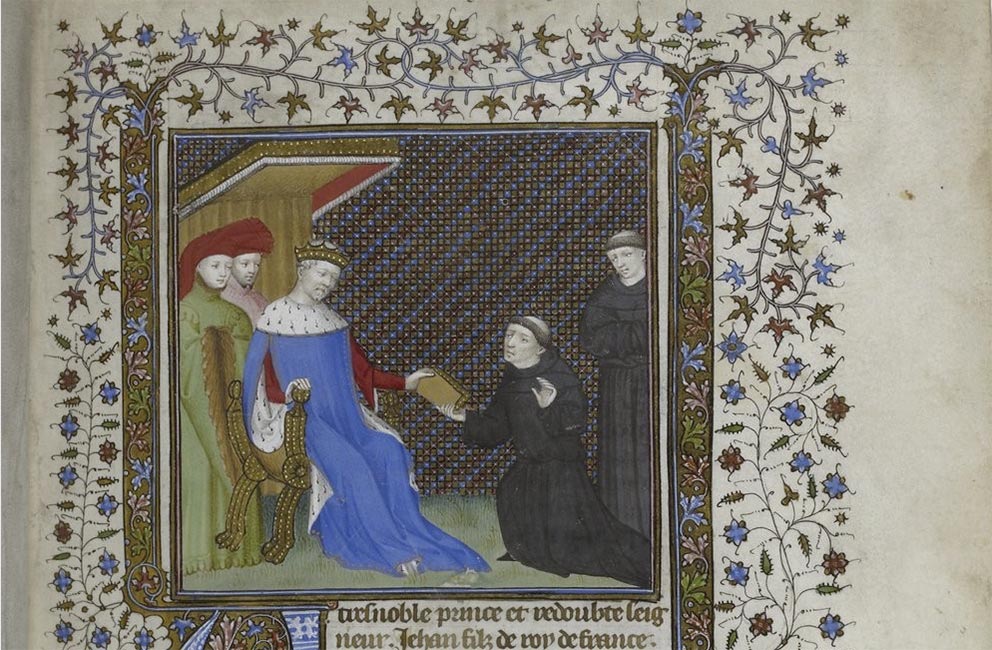 tresnoble prince et redoubte seig
neur. Jehan filz de roy de france.